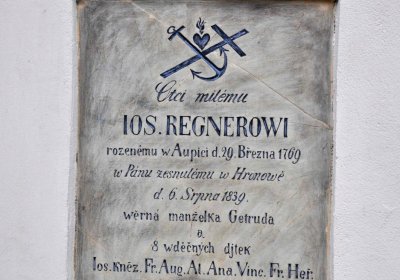 Ctci milému
IOS. REGNEROWI
rozenému w Aupici d. 29. Března 1769
w Pánu zesnulému w Hronowě
d. 6. Srpna 1839.
wěrná manželka Getruda
a.
8 wděčných djtek
Ios. Kněz. Fr. Aug. At. Ana. Vinc. Fr. Heř.